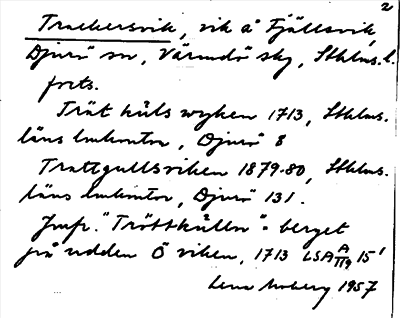 2
Trackersvik, vik å Fjällsvik,
Djurö sn, Värmdö skg, Sthlms. l.
forts.
Trät kåls wyken 1713, Sthlms.
läns lmkontor, Djurö 8
Trattgullsviken 1879-80, Sthlms.
läns lmkontor, Djurö 131.
Jmfr. "Tröttkulln" = berget
på udden Ö viken, 1713 LSA A II9 15'
Lena Moberg 1957